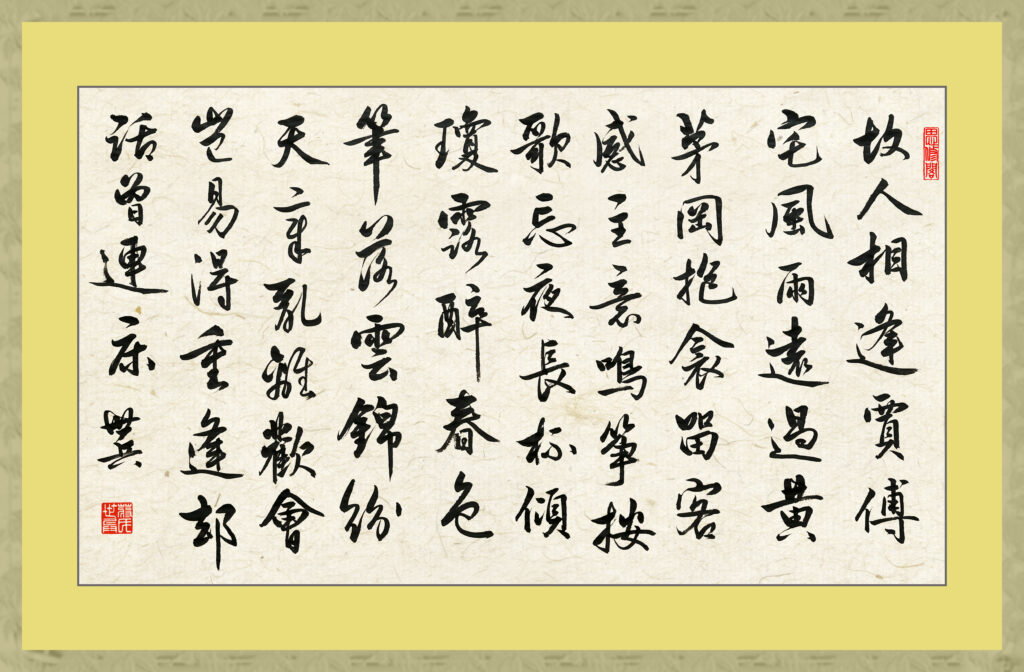 故人相逢賈傅
宅風雨遠過黃
茅岡抱衾留客
感主意鳴箏按
歌忘夜長杯傾
瓊露醉春色
筆落雲錦紛
天章亂離歡會
豈易得重逢却
話曾連床